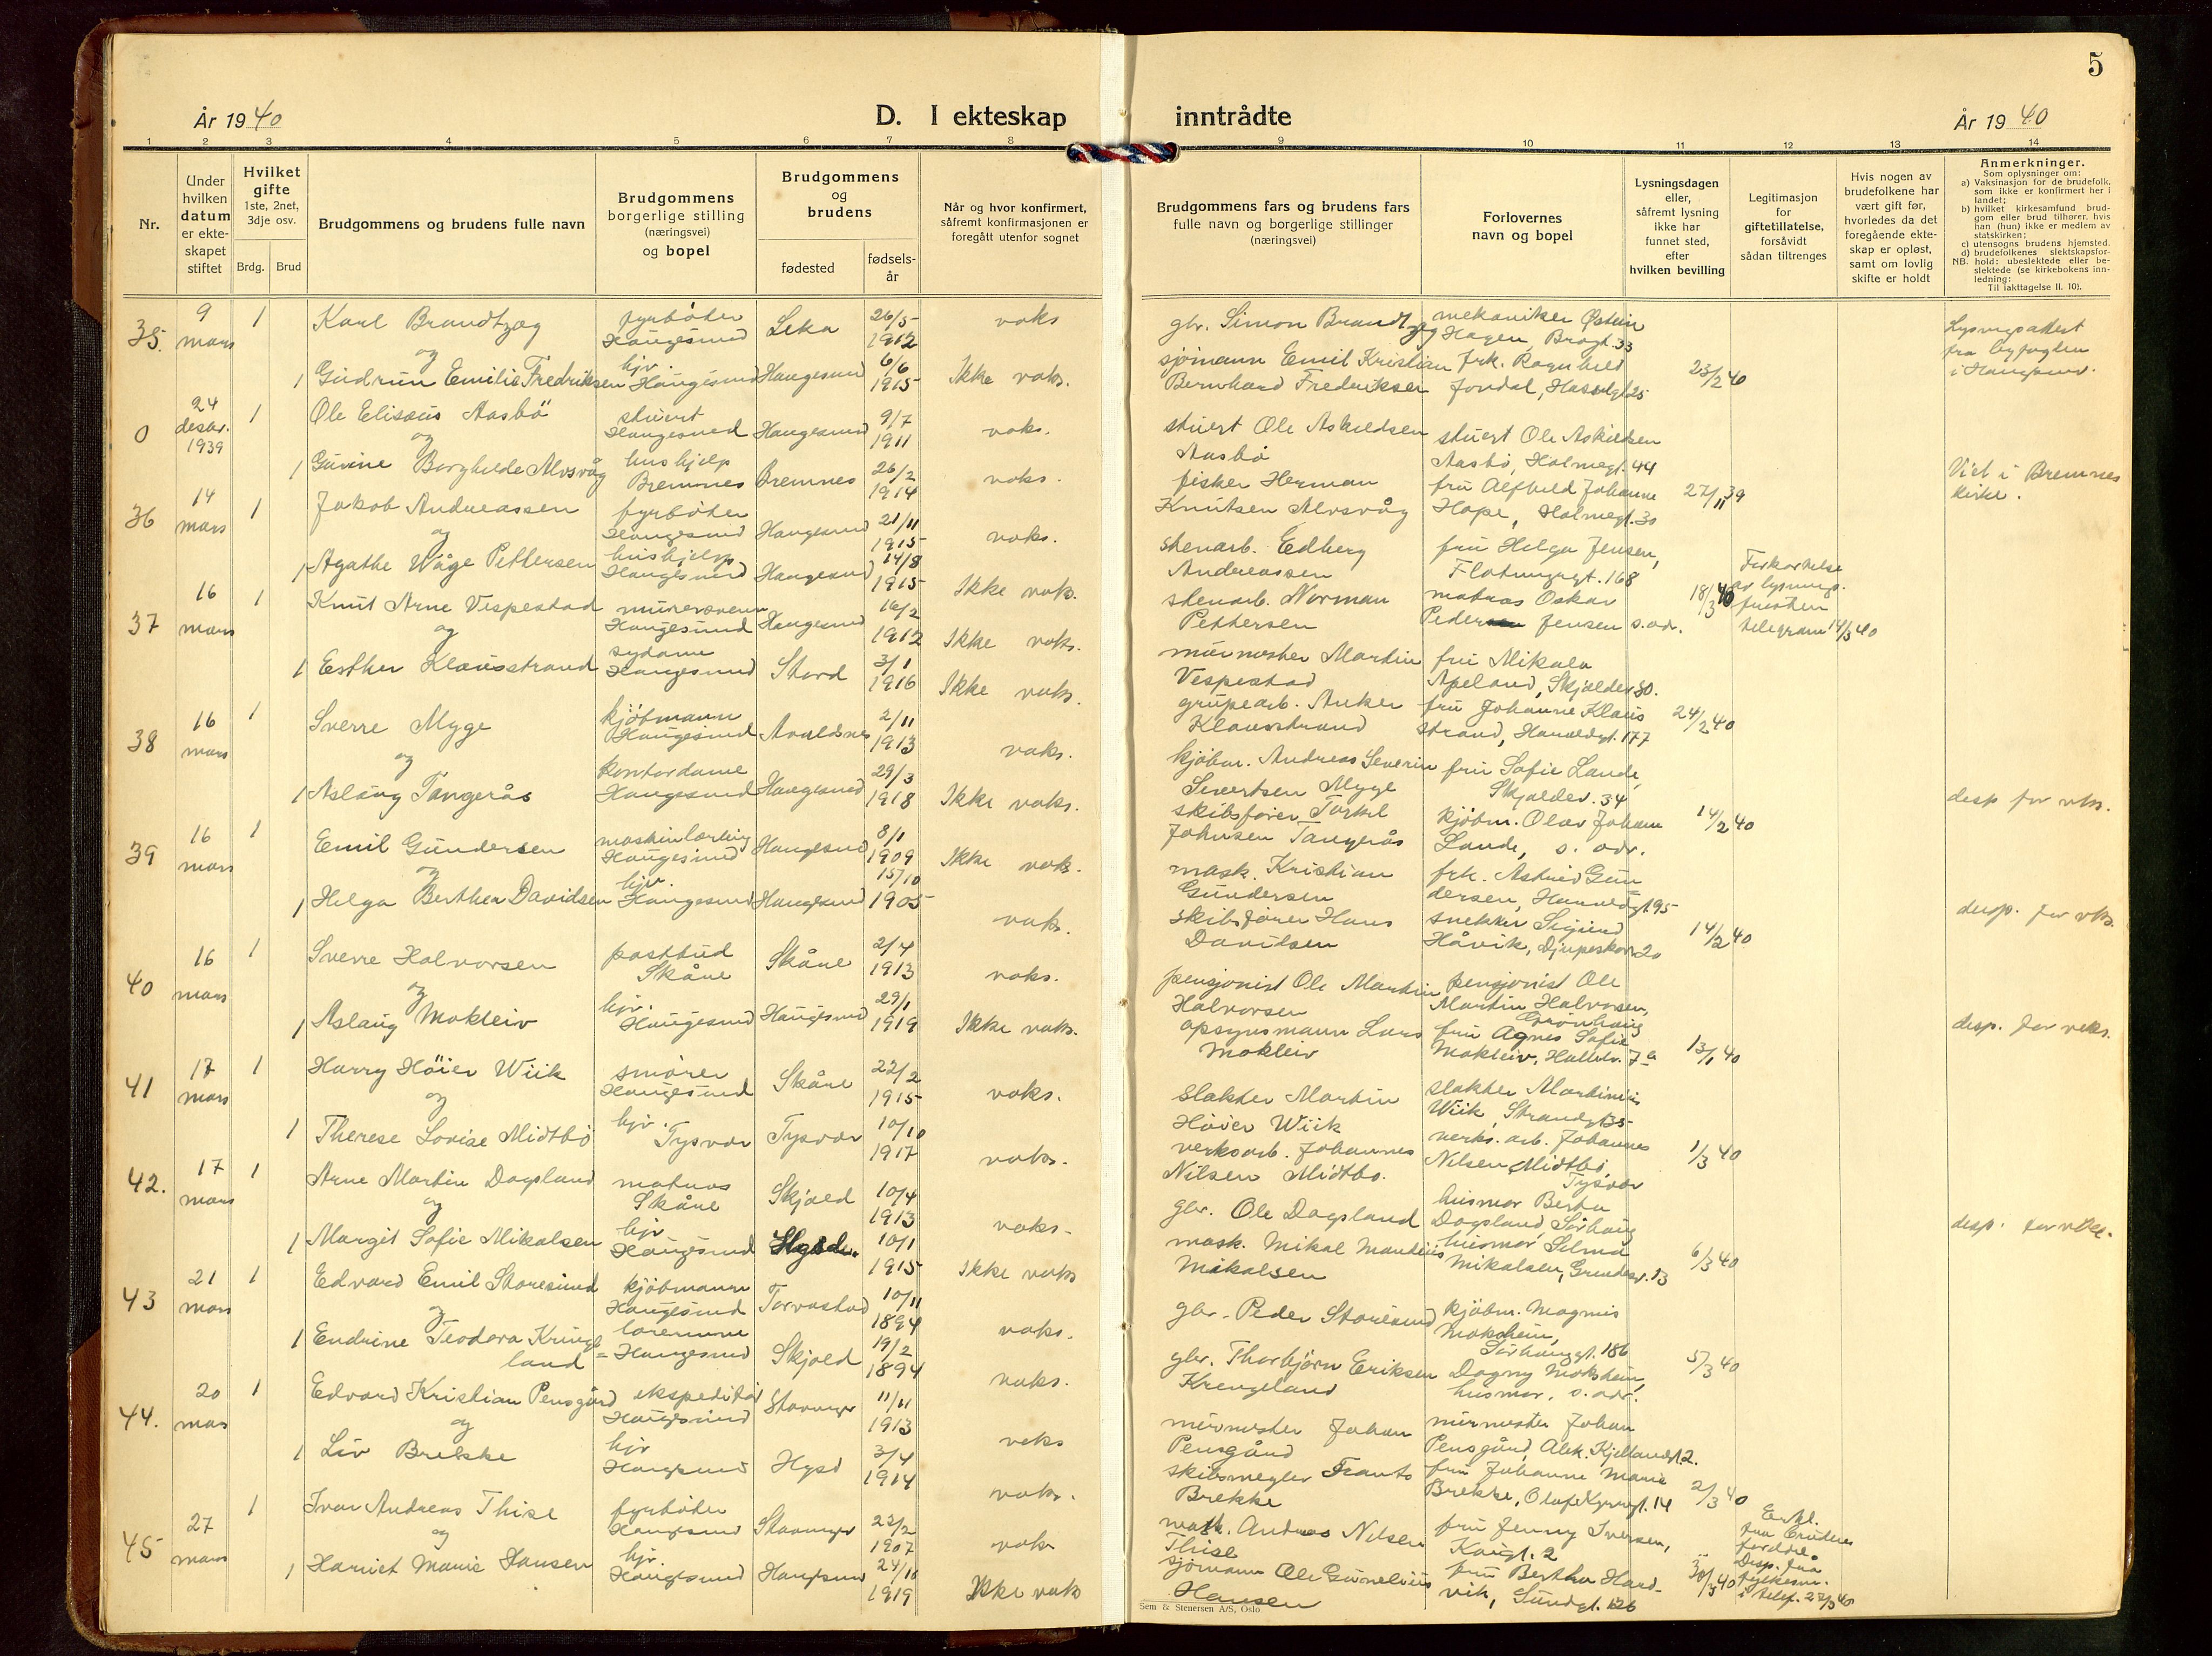 5
År 1940
D. I ekteskap
inntrådte
År 1940
1 2 3 4 5 6 7 8 9 10 11 12 13 14
Nr.
Under
hvilken
datum
er ekte-
skapet
stiftet
Hvilket
gifte
1ste, 2net,
3dje osv.
Brdg. Brud
Brudgommens og brudens fulle navn
Brudgommens
borgerlige stilling
(næringsvei)
og bopel
Brudgommens
og
brudens
fødested
fødsels-
år
Når og hvor konfirmert,
såfremt konfirmasjonen er
foregått utenfor sognet
Brudgommens fars og brudens fars
fulle navn og borgerlige stillinger
(næringsvei)
Forlovernes
navn og bopel
Lysningsdagen
eller,
såfremt lysning
ikke har
funnet sted,
efter
hvilken bevilling
Legitimasjon
for
giftetillatelse,
forsåvidt
sådan tiltrenges
Hvis nogen av
brudefolkene har
vært gift før,
hvorledes da det
foregående ekte-
skap er opløst,
samt om lovlig
skifte er holdt
Anmerkninger.
Som oplysninger om:
a) Vaksinasjon for de brudefolk,
som ikke er konfirmert her i
landet;
b) hvilket kirkesamfund brud-
gom eller brud tilhører, hvis
han (hun) ikke er medlem av
statskirken;
c) utensogns brudens hjemsted.
d) brudefolkenes slektskapsfor-
NB. hold: ubeslektede eller be-
slektede (se kirkebokens inn-
ledning:
Til iakttagelse II. 10).
35. 9 mars 1 Karl Brandtzæg fyrbøter Haugesund Leka 26/5 1912 vaks
gbr. Simon Brandtzæg mekaniker Østein Hagen, Bragt. 33
og
1 Gudrun Emilie Fredriksen hjv. Haugesund Haugesund 6/6 1915 Ikke vaks.
sjømann Emil Kristian Bernhard Frederiksen frk. Ragnhild Jondal, 23/2 40
Lysningsattest fra byfogden i Haugesund.
0 24 desbr. 1939 1 Ole Elisæus Aasbö stuert Haugesund Haugesund 9/7 1911 vaks.
stuert Ole Askildsen Aasbø stuert Ole Askildsen Aasbø, Holmegt. 44
og
1 Gurine Borghilde Alvsvåg hushjelp Bremnes Bremnes 26/2 1914 vaks.
fisker Herman Knutsen Alvsvåg fru Alfhild Johanne Hope, Holmegt. 30 27/11 39
Viet i Bremnes kirke.
36 14 mars 1 Jakob Andreassen fyrbøter Haugesund Haugesund 21/11 1915 vaks.
stenarb. Edberg Andreassen fru Helga Jensen, Flotmyrgt. 168
og
1 Agathe Våge Pettersen hushjelp Haugesund Haugesund 14/8 1915 Ikke vaks.
stenarb. Norman Pettersen matros Oskar Peder Jensen s. adr. 18/3 40
Forkortelse av lysnings. fristen telegram 14/3 40
37 16 mars 1 Knut Arne Vespestad murersvenn Haugesund Haugesund 16/2 1912 Ikke vaks.
murmester Martin Vespestad fru Mikala Apeland, Skjoldev 30.
og
1 Esther Klausstrand sydame Haugesund Stord 3/1 1916 Ikke vaks.
grubearb. Anker Klausstrand fru Johanne Klausstrand, Haraldsgt. 177 24/2 40
38 16 mars 1 Sverre Myge kjøbmann Haugesund Avaldsnes 2/11 1913 vaks.
kjøbm. Andreas Severin Sivertsen Myge fru Sofie Lande, Skjoldev. 34
og
1 Aslaug Tangerås kontordame Haugesund Haugesund 29/3 1918 Ikke vaks.
skibsfører Torkel Johnsen Tangerås kjøbm. Olav Johan Lande, s. adr. 14/2 40
desp for vks.
39 16 mars 1 Emil Gundersen maskinlærling Haugesund Haugesund 8/1 1909 Ikke vaks.
mask. Kristian Gundersen frk. Astrid Gundersen, Haraldsgt. 95
og
1 Helga Berthea Davidsen hjv. Haugesund Haugesund 15/10 1905 vaks.
skibsfører Hans Davidsen snekker Sigurd Håvik, Djupeskar 20 14/2 40
desp. for vks.
40 16 mars 1 Sverre Halvorsen postbud Skåre Skåre 2/4 1913 vaks.
pensjonist Ole Martin Halvorsen pensjonist Ole Martin Halvorsen, Grønhaug
og
1 Aslaug Mokleiv hjv. Haugesund Haugesund 29/1 1919 Ikke vaks.
opsynsmann Lars Mokleiv fru Agnes Sofie Mokleiv, 13/1 40
desp. for vaks.
41 17 mars 1 Harry Höier Wiik smører Haugesund Skåre 22/2 1915 vaks.
slakter Martin Høier Wiik slakter Martinius Wiik, Strandgt 35
og
1 Therese Lovise Midtbø hjv. Tysvær Tysvær 10/10 1917 vaks.
verksarb. Johannes Nilsen Midtbø. verks. arb. Johannes Nilsen Midtbø, Tysvær 1/3 40
42. 17 mars 1 Arne Martin Dagsland matros Skåre Skjold 10/4 1913 vaks.
gbr. Ole Dagsland husmor Berta Dagsland, Sørhaug
og
1 Margit Sofie Mikalsen hjv Haugesund 10/1 1915 Ikke vaks
mask. Mikal Mandeius Mikalsen husmor Selma Mikalsen, 13 6/3 40
desp. for vks.
43 21 mars 1 Edvard Emil Storesund kjøbmann Haugesund Torvastad 10/11 1894 vaks.
gbr. Peder Storesund kjøbm. Magnus Moksheim, Sørhauggt. 186
og
1 Endrine Teodora Kringeland lærerinne Haugesund Skjold 19/2 1894 vaks.
gbr. Thorbjørn Eriksen Krengeland Dagny Moksheim, husmor, s. adr. 5/3 40
44. 20 mars 1 Edvard Kristian Pensgård ekspeditør Haugesund Stavanger 11/11 1913 vaks
murmester Johan Pensgård murmester Johan Pensgård, Alek. Kjellandsgt 2.
og
1 Liv Brekke hjv Haugesund 3/4 1914 vaks.
skibsmegler Frants Brekke fru Johanne Marie Brekke, Olaf Kyrresgt. 14 2/3 40
45 27 mars 1 Ivar Andreas Thise fyrbøter Haugesund Stavanger 23/2 1907 vaks
mask. Andreas Nilsen Thise fru Jenny Iversen, 2
og
1 Harriet Marie Hansen hjv. Haugesund Haugesund 24/10 1919 Ikke vaks
sjømann Ole Gunelius Hansen fru Bertha Hardvik, Sundgt. 126 30/3 40
Erkl. fra brudens foreldre. Desp. fra fylkesm. i telef. 27/3 40
Sem & Stenersen A/S, Oslo